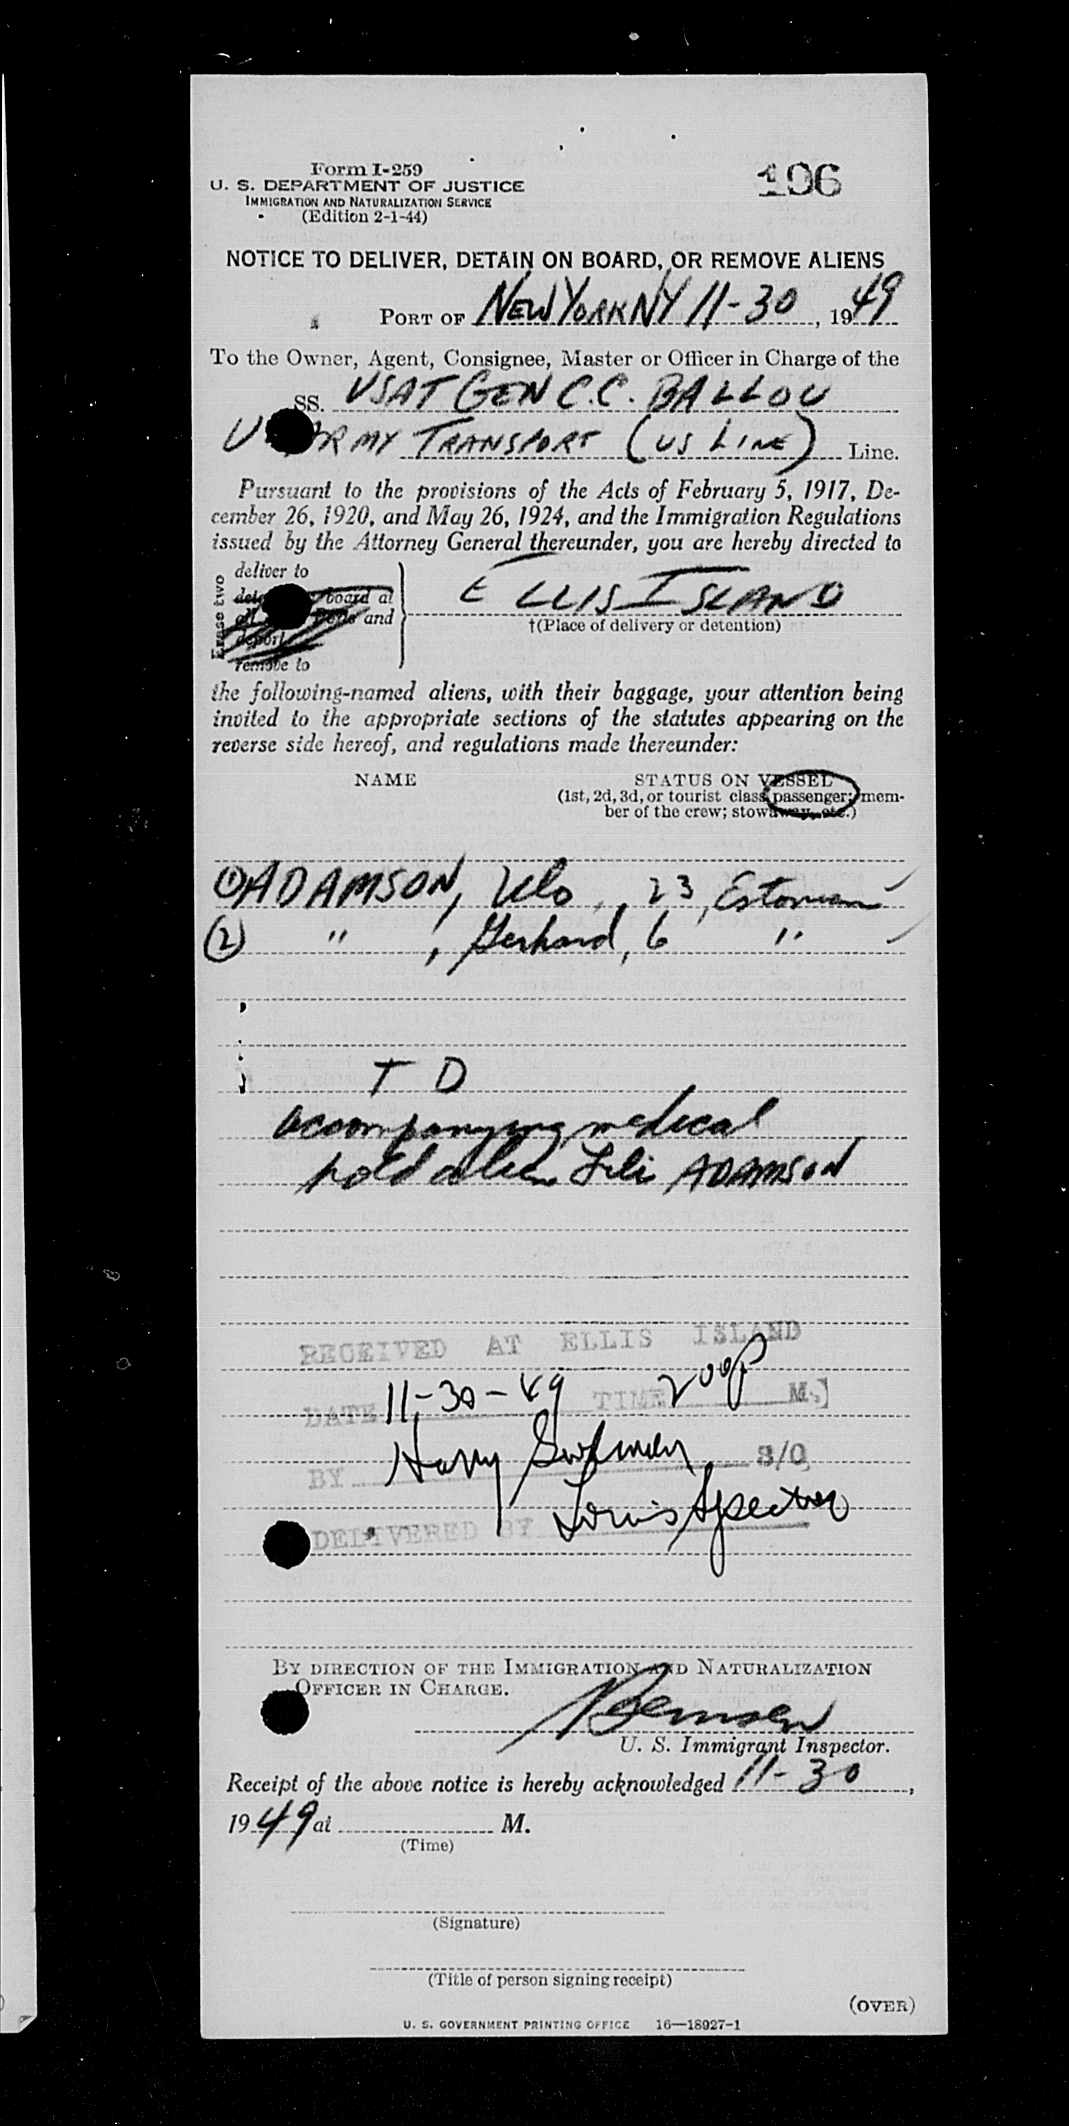 Form I-259
U. S. DEPARTMENT OF JUSTICE
IMMIGRATION AND NATURALIZATION SERVICE
(Edition 2-1-44)
196
NOTICE TO DELIVER, DETAIN ON BOARD, OR REMOVE ALIENS
PORT OF NEW YORK NY 11-30, 1949
To the Owner, Agent, Consignee, Master or Officer in Charge of the
SS. USAT GEN C.C. BALLOU
ARMY TRANSPORT (US LINE) Line.
Pursuant to the provisions of the Acts of February 5, 1917, De-
cember 26, 1920, and May 26, 1924, and the Immigration Regulations
issued by the Attorney General thereunder, you are hereby directed to
Erase two
deliver to
board at
and
deport
remove to
ELLIS ISLAND
†(Place of delivery or detention)
the following-named aliens, with their baggage, your attention being
invited to the appropriate sections of the statutes appearing on the
reverse side hereof, and regulations made thereunder:
NAME STATUS ON VESSEL
(1st, 2d, 3d, or tourist class passenger; mem-
ber of the crew; stowaway, etc.)
(1) ADAMSON, Ulo, 23, Estonian
(2) " , Gerhard, 6 "
T D
accompanying medical
hold alien Lili ADAMSON
RECEIVED AT ELLIS ISLAND
DATE 11-30-49 TIME 200P M.
BY Harry S/O
Louis Spector
DELIVERED BY
BY DIRECTION OF THE IMMIGRATION AND NATURALIZATION
OFFICER IN CHARGE.
U. S. Immigrant Inspector.
Receipt of the above notice is hereby acknowledged 11-30,
1949 at M.
(Time)
(Signature)
(Title of person signing receipt)
(OVER)
U. S. GOVERNMENT PRINTING OFFICE 16—18927-1